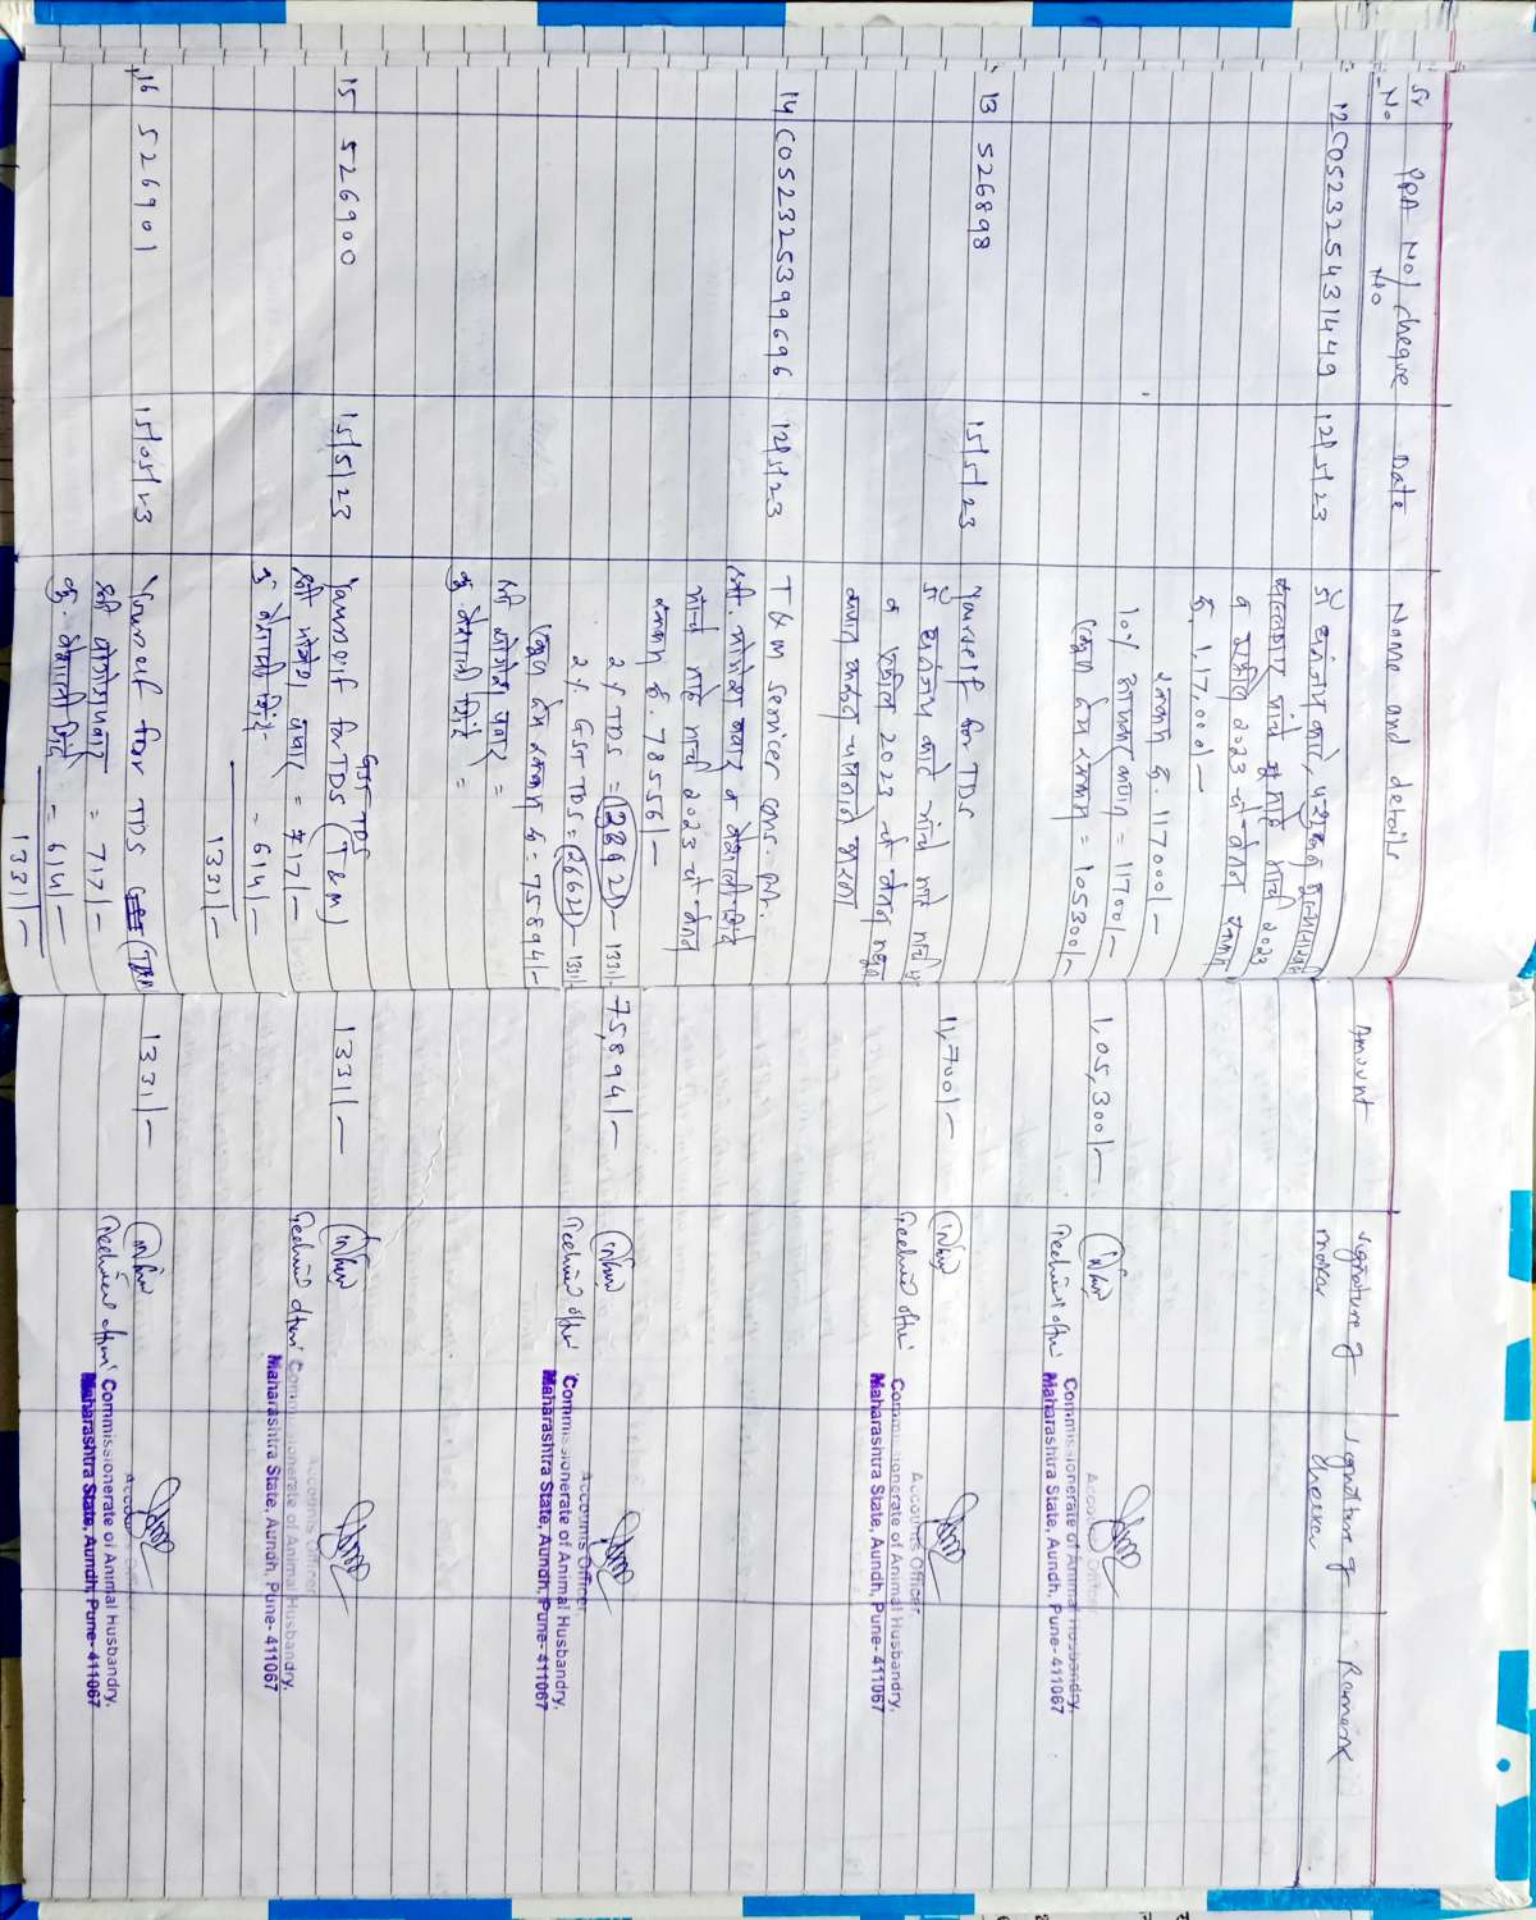 Sr No PPA No/cheque No Date Name and details Amount signature of maker signature of checker Remark
12 C052325431449 12/5/23 डॉ धनंजय काटे, पशुधन
व एप्रिल 2023 चे वेतन रक्कम
रु. 1,17,000/-
रक्कम रु. 117000/-
10% आयकर कपात = 11700/-
एकूण देय रक्कम = 105300/- 1,05,300/-
Accounts Officer
Commissionerate of Animal Husbandry,
Maharashtra State, Aundh, Pune-411067
13 526898 15/5/23 Yourself for TDS 11,700/-
डॉ धनंजय काटे यांचे माहे मार्च
व एप्रिल 2023 चे वेतन मधून
Accounts Officer,
Commissionerate of Animal Husbandry,
Maharashtra State, Aundh, Pune-411067
14 C052325399696 12/5/23 T & M services cons. pvt.
श्री. योगेश पवार व वैशाली शिंदे
यांचे माहे मार्च 2023 चे वेतन
रक्कम रु. 78556/-
2% TDS = 1331/- 75,894/-
2% GST TDS = 2662/- 1331/-
एकूण देय रक्कम रु = 75894/-
श्री योगेश पवार =
कु. वैशाली शिंदे =
Accounts Officer,
Commissionerate of Animal Husbandry,
Maharashtra State, Aundh, Pune-411067
15 526900 15/5/23 Yourself for GST TDS (T&M) 1331/-
श्री योगेश पवार = 717/-
कु वैशाली शिंदे - 614/-
1331/-
Accounts Officer,
Commissionerate of Animal Husbandry,
Maharashtra State, Aundh, Pune-411067
16 526901 15/05/23 Yourself for TDS (T&M 1331/-
श्री योगेश पवार = 717/-
कु. वैशाली शिंदे = 614/-
1331/-
Accounts Officer
Commissionerate of Animal Husbandry,
Maharashtra State, Aundh, Pune-411067